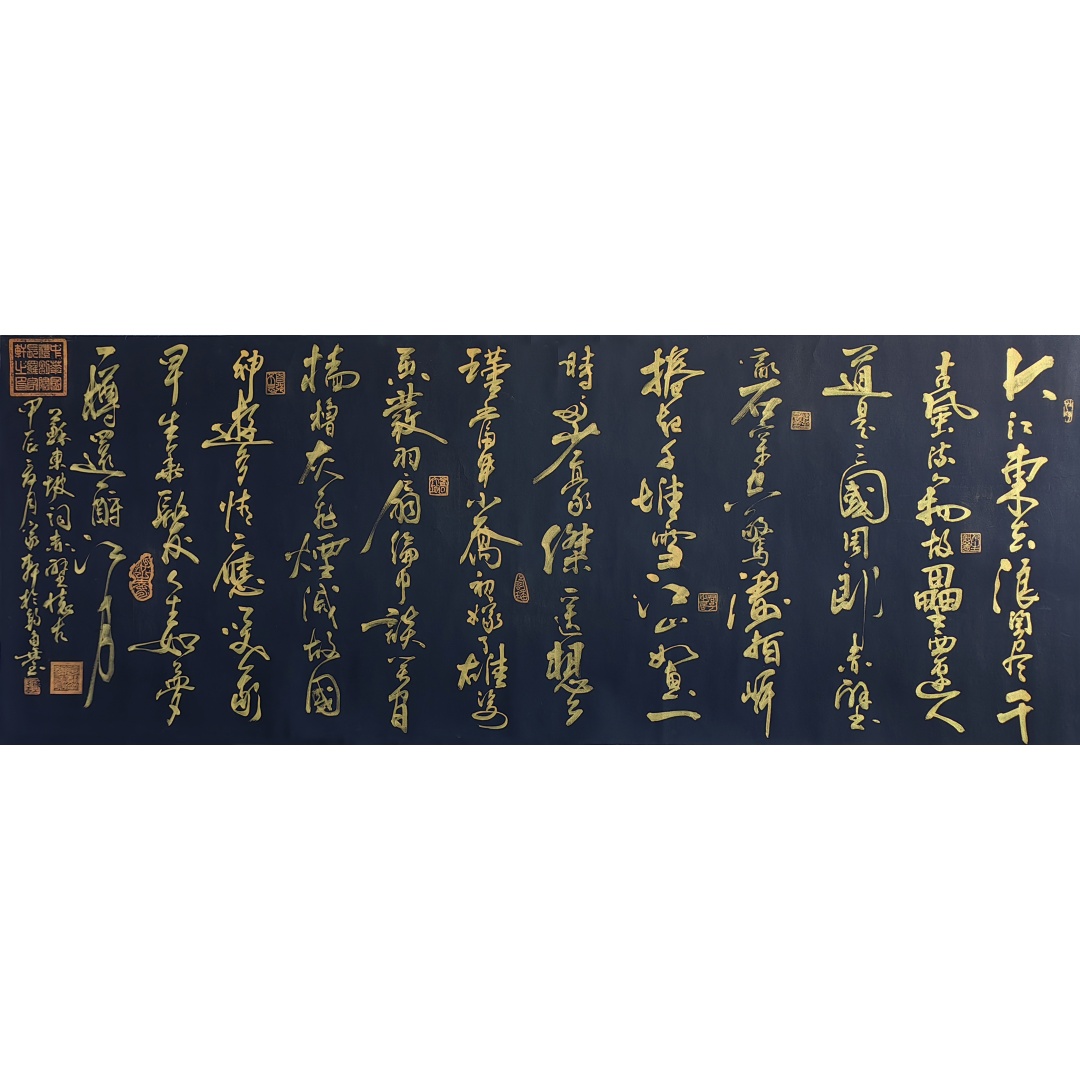 大江東去浪淘尽千
古風流人物故壘西邊人
道是三國周郎赤壁
亂石穿空驚濤拍岸
捲起千堆雪江山如畫一
時多少豪傑遙想公
瑾當年小喬初嫁了雄姿
英發羽扇綸巾談笑間
檣櫓灰飛煙滅故國
神遊多情應笑我
早生華髮人生如夢
一樽還酹江月
蘇東坡詞赤壁懷古
甲辰 月家軒於